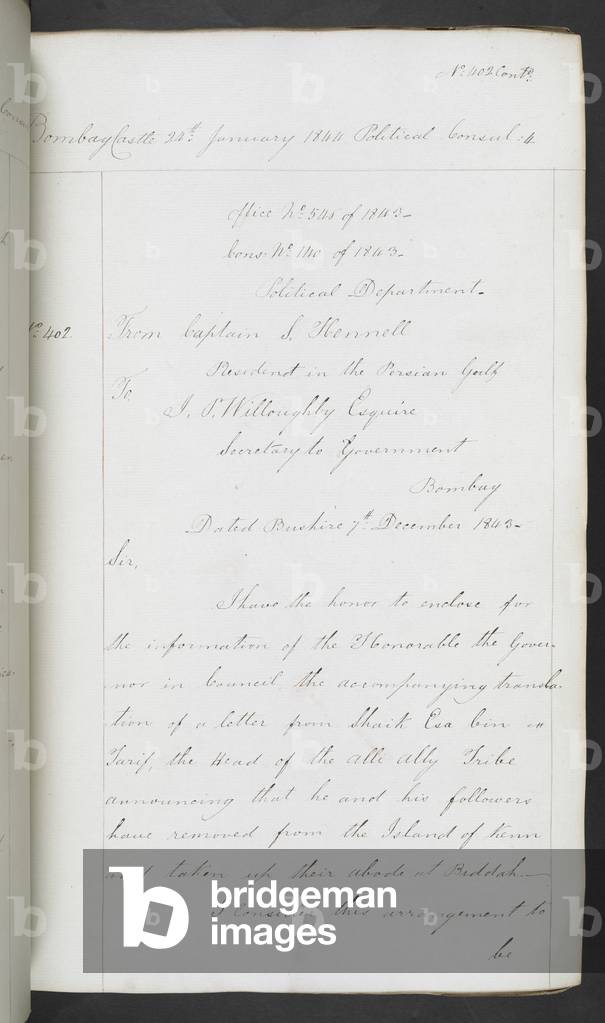 No. 402 Contd.
Bombay Castle 24th January 1844 Political Consul: 4.
Office No. 545 of 1843-
Cons. No. 140 of 1843-
Political Department-
No. 402.
From Captain S. Hennell
Resident in the Persian Gulf
To,
J. P. Willoughby Esquire
Secretary to Government
Bombay
Dated Bushire 7th December 1843-
Sir,
I have the honor to enclose for
the information of the Honorable the Gover-
nor in Council, the accompanying transla-
tion of a letter from Shaik Esa bin
Tarif, the Head of the alli ally Tribe
announcing that he and his followers
have removed from the Island of Kenn
and taken up their abode at Biddah-
I Consider this arrangement to
be
b bridgeman
images